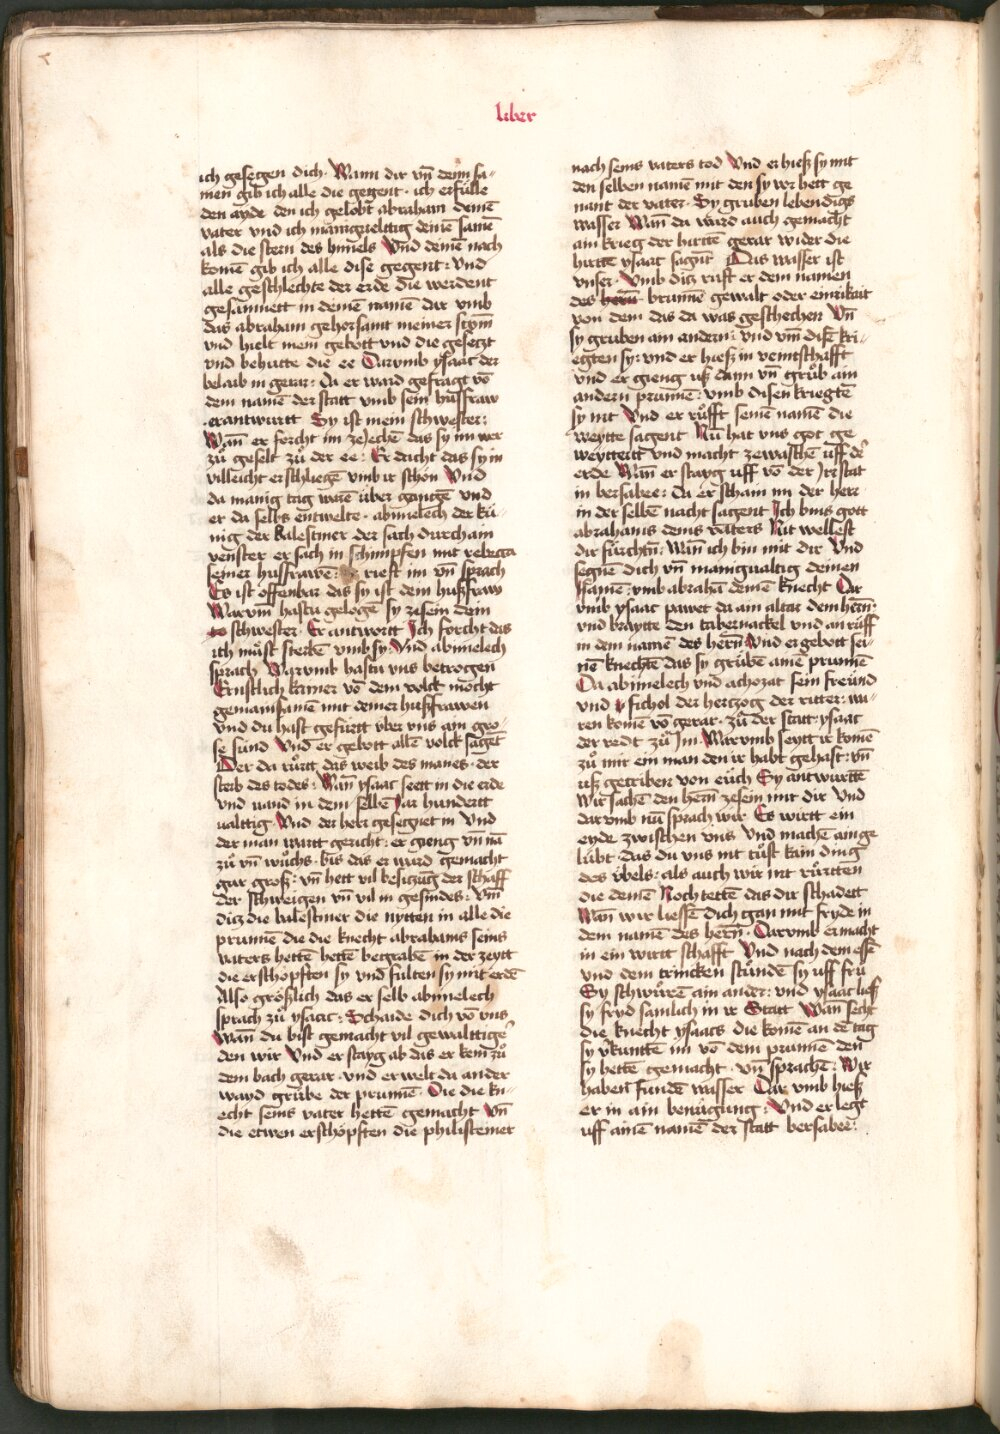 liber
ich gesegen dich · Wann dir vn̄ denn̄ sa-
men gib ich alle die gegent · ich erfülle
den ayde den ich gelobt abraham deinē
vater vnd ich manigueltig deinē samē
als die stern des himels Vnd deinē nach
komē gib ich alle dise gegent : Vnd
alle geschlechte der erde die werdent
gesamnett in deinē namē dar vmb
das abraham gehorsamt meiner stym̄
vnd hielt mein gebott vnd die gesetzt
vnd behutte die ee Darumb ysaac der
belaib in gerar : da er ward gefragt vō
dem namē der statt vmb sein husfraw
erantwurtt Sy ist mein schwester :
Wan̄ er forcht im zejechē das sy im wer
zů geselt zů der ee : Er dacht das sy in
villeicht erschliegē vmb ir schön Vnd
da manig tag warē über gangē vnd
er da selbs entwelte · abimelech der kü-
nig der balestiner der sach durch ain
venster er sach in schimpfen mit rebecca
seiner husfrawē : rieft im vn̄ sprach
Es ist offenbar das sy ist dem husfraw
Warum̄ hastu gelogē sy zesein dein
schwester · Er antwortt Ich forcht das
ich můst sterbē vmb sy · Vnd abimelech
sprach Warumb hastu vns betrogen
Ernstlich kainer vō dem volck möcht
gemainsamē mit deiner husfrawen
vnd du hast gefürtt über vns ain gro-
se sünd Vnd er gebott allē volck sagēt
Der da růrtt das weib des manes · der
sterb des todes : Wan̄ ysaac seett in die erde
vnd vand in dem selbē Jar hundertt
ualttig · Vnd der herr gesegnet in Vnd
der man wartt gericht : er gieng vn̄ nā
zů vn̄ wůchs · bis das er ward gemacht
gar groß : vn̄ hett vil besitzūg der schaff
der schweigen vn̄ vil in gesindes : Vm̄
ditz die balestiner die nytten in alle die
prunnē die die knecht abrahams seins
vaters hettē begrabē in der zeytt
die erschöpften sy vnd fülten sy mit erdē
Also größlich das er selb abimelech
sprach zů ysaac : Schaide dich vō vns
Wan̄ du bist gemacht vil gewalttiger
den wir Vnd er stayg ab das er kem zů
dem bach gerar · vnd er welt da ander
wayd grübe der prunnē · Die die kn-
echt seins vater hettē gemacht Vn̄
die etwen erschöpften die philisteiner
nach seins vaters tod Vnd er hieß sy mit
den selben namē mit den sy vor hett ge
nant der vater · Sy gruben lebendigs
wasser Wan̄ da ward auch gemacht
ain krieg der hirtē gerar wider die
hirtē ysaac sagēt Das wasser ist
vnser · Vmb ditz rüft er dem namen
des brunnē gewalt oder
von dem das da was geschechen Vn̄
sy gruben ain andern : vnd vm̄ disē kri-
egten sy : vnd er hieß in veintschafft
Vnd er gieng uß dann vn̄ grůb ain
andern prunnē : vmb disen kriegtē
sy nit Vnd er rüfft seinē namē die
weytte sagent Nū hat vns got ge
weytteitt vnd macht zewachsē uff der
erde Wan̄ er stayg uff vō der Jrstat
in bersabee : da erschain im der herr
in der selbē nacht sagent Ich bins gott
abrahams deins vaters Nit wellest
dir fürchtn̄ : Wan̄ ich bin mit dir Vnd
segnē dich vn̄ manigualtig deinen
samē : vmb abrahā deinē knecht Dar
vmb ysaac pawet da ain altar dem hern̄ ·
vnd braytte den tabernackel vnd anrüff
in dem namē des hern̄ Vnd er gebott sei-
nē knechtē das sy grübē ainē prunnē
Da abimelech vnd achozat sein freünd
vnd phichol der hertzog der ritter : wa-
ren komē vō gerar · zů der statt · ysaac
der redt zů Jm · Warumb seytt ir komē
zů mir ein man den ir habt gehast : vn̄
uß getriben von euch Sy antwurttē
Wir sachē den hern̄ zesein mit dir Vnd
darumb nū sprach wir Es wirtt ein
eyde zwischen vns Vnd machē ain ge
lübt · das du vns nit tůst kain ding
des übels : als auch wir nit růrttēn
die deinē Noch tettē das dir schadett
Wan̄ wir liessē dich gan mit fryde in
dem namē des hern̄ · Darumb er macht
in ein wirtschafft Vnd nach dem essē
vnd dem trincken stůndē sy uff frü
Sy schwůrē ain ander : vnd ysaac ließ
sy fryd samlich in ir Statt Wan̄ secht
die knecht ysaacs die komē an dē tag
sy v̄kuntē im vō dem prunnē den
sy hettē gemacht · vn̄ sprachē : Wir
haben fundē wasser Dar vmb hieß
er in ain benügung : Vnd er legt
uff ainē namē der statt bersabee :